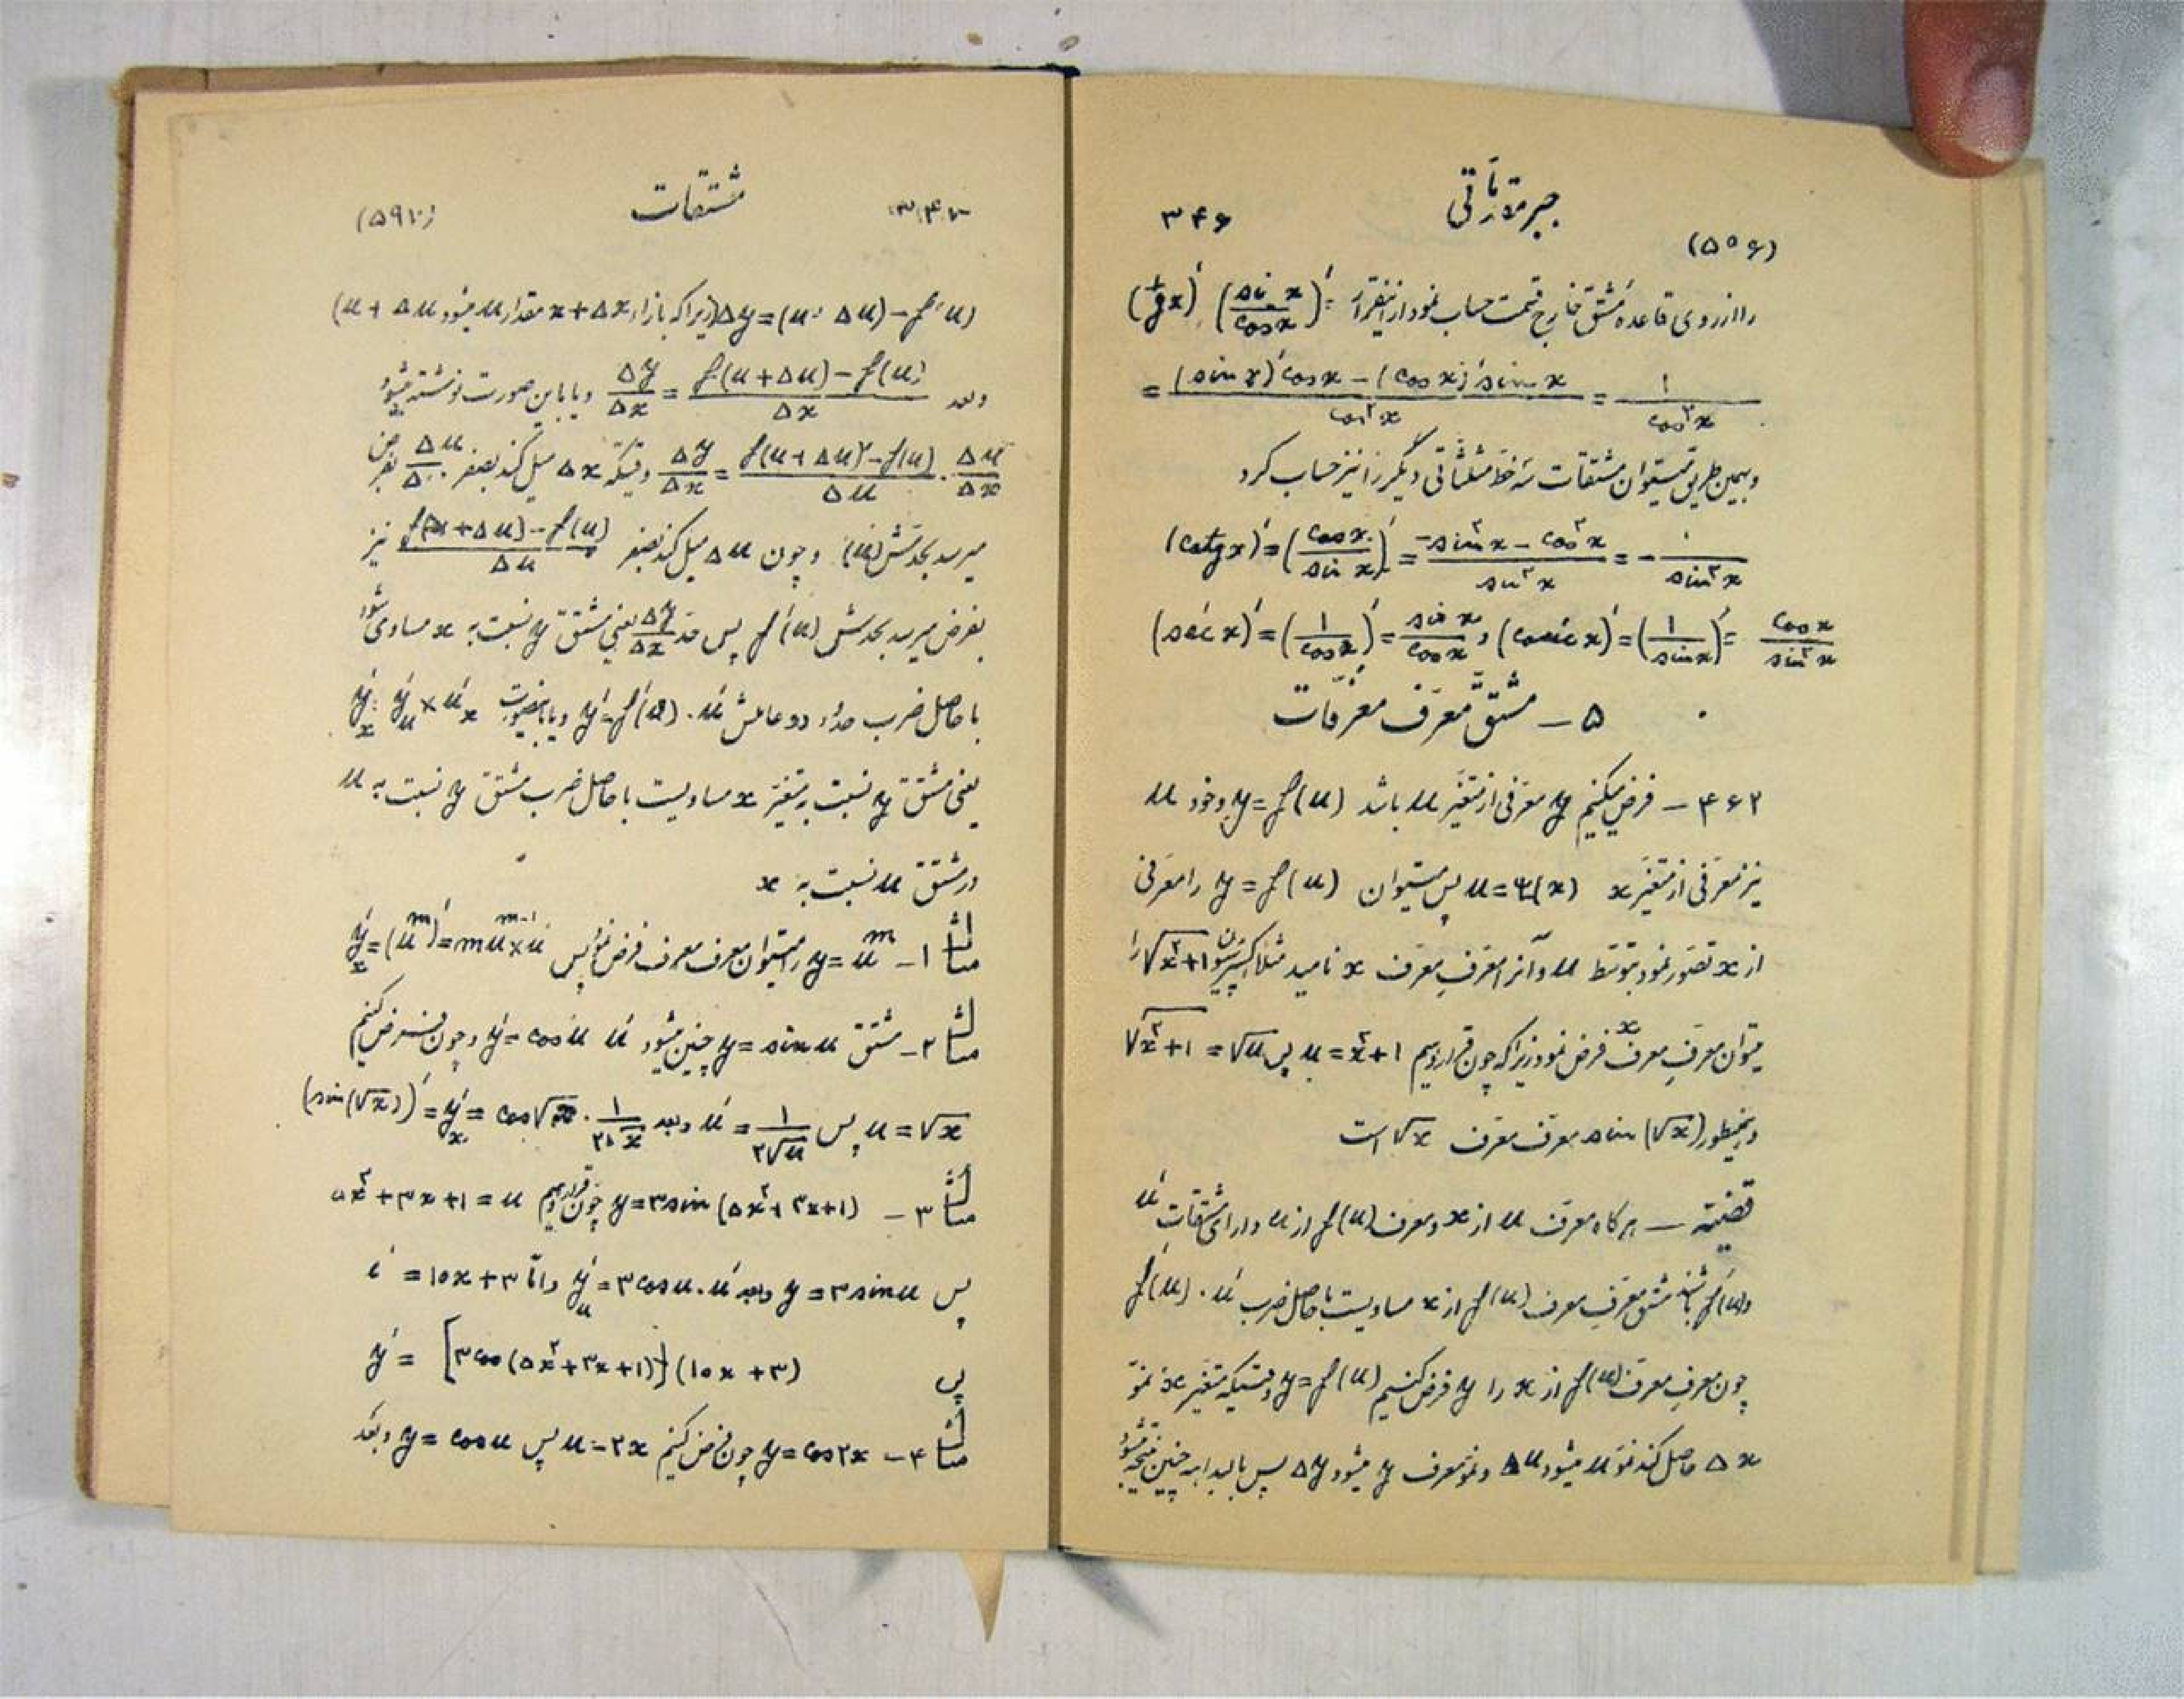 (۵۰۶) جبر مقدماتی ۳۴۶
را از روی قاعده مشتق خارج قسمت حساب نمود از اینقرار (tgx)' = (sin x / cos x)'
= ((sin x)' cos x - (cos x)' sin x) / cos²x = ۱ / cos²x
و بهمین طریق میتوان مشتقات سه خط مثلثاتی دیگر را نیز حساب کرد
(cotg x)' = (cos x / sin x)' = (-sin²x - cos²x) / sin²x = - ۱ / sin²x
(séc x)' = (۱ / cos x)' = sin x / cos²x , (coséc x)' = (۱ / sin x)' = cos x / sin²x
۵ - مشتق معرف معرفات
۴۶۲ - فرض میکنیم y معرفی از متغیر u باشد y = f(u) و خود u
نیز معرفی از متغیر x u = φ(x) پس میتوان y = f(u) را معرفی
از x تصور نمود بتوسط u و آنرا معرف معرف x نامید مثلا اکسپرسیون √x²+1 را
میتوان معرف معرف x فرض نمود زیرا که چون قرار دهیم u = x²+1 پس √u = √x²+1
و بهمینطور sin(√x) معرف معرف √x است
قضیه - هرگاه معرف u از x و معرف f(u) از u دارای مشتقات u'
و f'(u) باشند مشتق معرف معرف f(u) از x مساویست با حاصل ضرب f'(u) . u'
چون معرف معرف f(u) از x را y فرض کنیم y = f(u) وقتیکه متغیر x نمو
Δx حاصل کند نمو u میشود Δu و نمو معرف y میشود Δy پس بالبداهه چنین نتیجه میشود
۳۴۷ مشتقات
Δy = (u + Δu) - f(u) (زیرا که بازاء x + Δx مقدار u میشود u + Δu)
و بعد Δy/Δx = (f(u + Δu) - f(u)) / Δx و یا باین صورت نوشته میشود
Δy/Δx = (f(u + Δu) - f(u)) / Δu . Δu/Δx وقتیکه Δx میل کند بصفر Δu/Δx
میرسد بحدش (u') و چون Δu میل کند بصفر (f(u + Δu) - f(u)) / Δu نیز
بفرض میرسد بحدش f'(u) پس حد Δy/Δx یعنی مشتق y نسبت به x مساوی شود
با حاصل ضرب حدود دو عاملش y' = f'(u) . u' و یا باینصورت y'x = y'u × u'x
یعنی مشتق y نسبت به متغیر x مساویست با حاصل ضرب مشتق y نسبت به u
در مشتق u نسبت به x
مثال ۱ - y = uᵐ را میتوان معرف معرف فرض نمود پس y'x = (uᵐ)' = muᵐ⁻¹ × u'
مثال ۲ - مشتق y = sin u چنین میشود y' = cos u u' و چون فرض کنیم
u = √x پس u' = ۱ / ۲√u و بعد (sin(√x))' = y'x = cos√x . ۱ / ۲√x
مثال ۳ - y = ۳sin(۵x²+۳x+۱) چون قرار دهیم ۵x²+۳x+۱ = u
پس y = ۳sin u و بعد y'u = ۳cos u . u' و اما u' = ۱۰x+۳
پس y' = [۳cos(۵x²+۳x+۱)](۱۰x+۳)
مثال ۴ - y = cos۲x چون فرض کنیم u = ۲x پس y = cos u و بعد